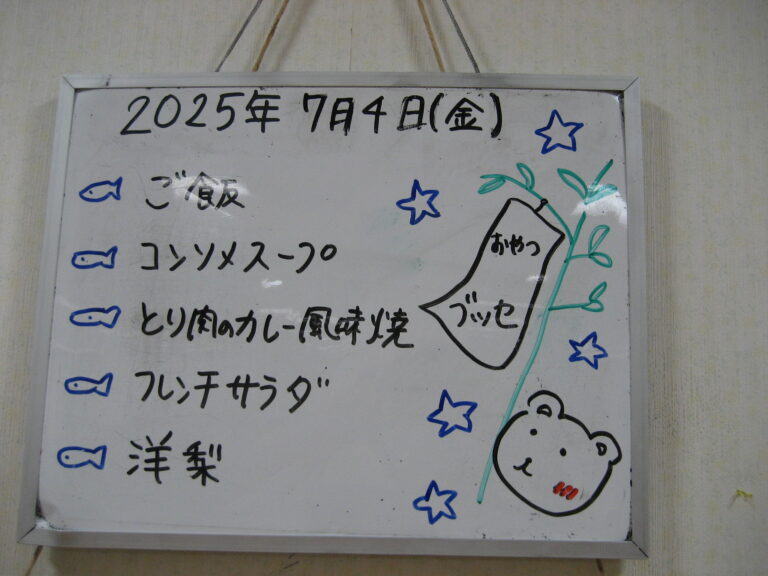 2025年 7月4日(金)
ご飯
コンソメスープ
とり肉のカレー風味焼
フレンチサラダ
洋梨
おやつ
ブッセ